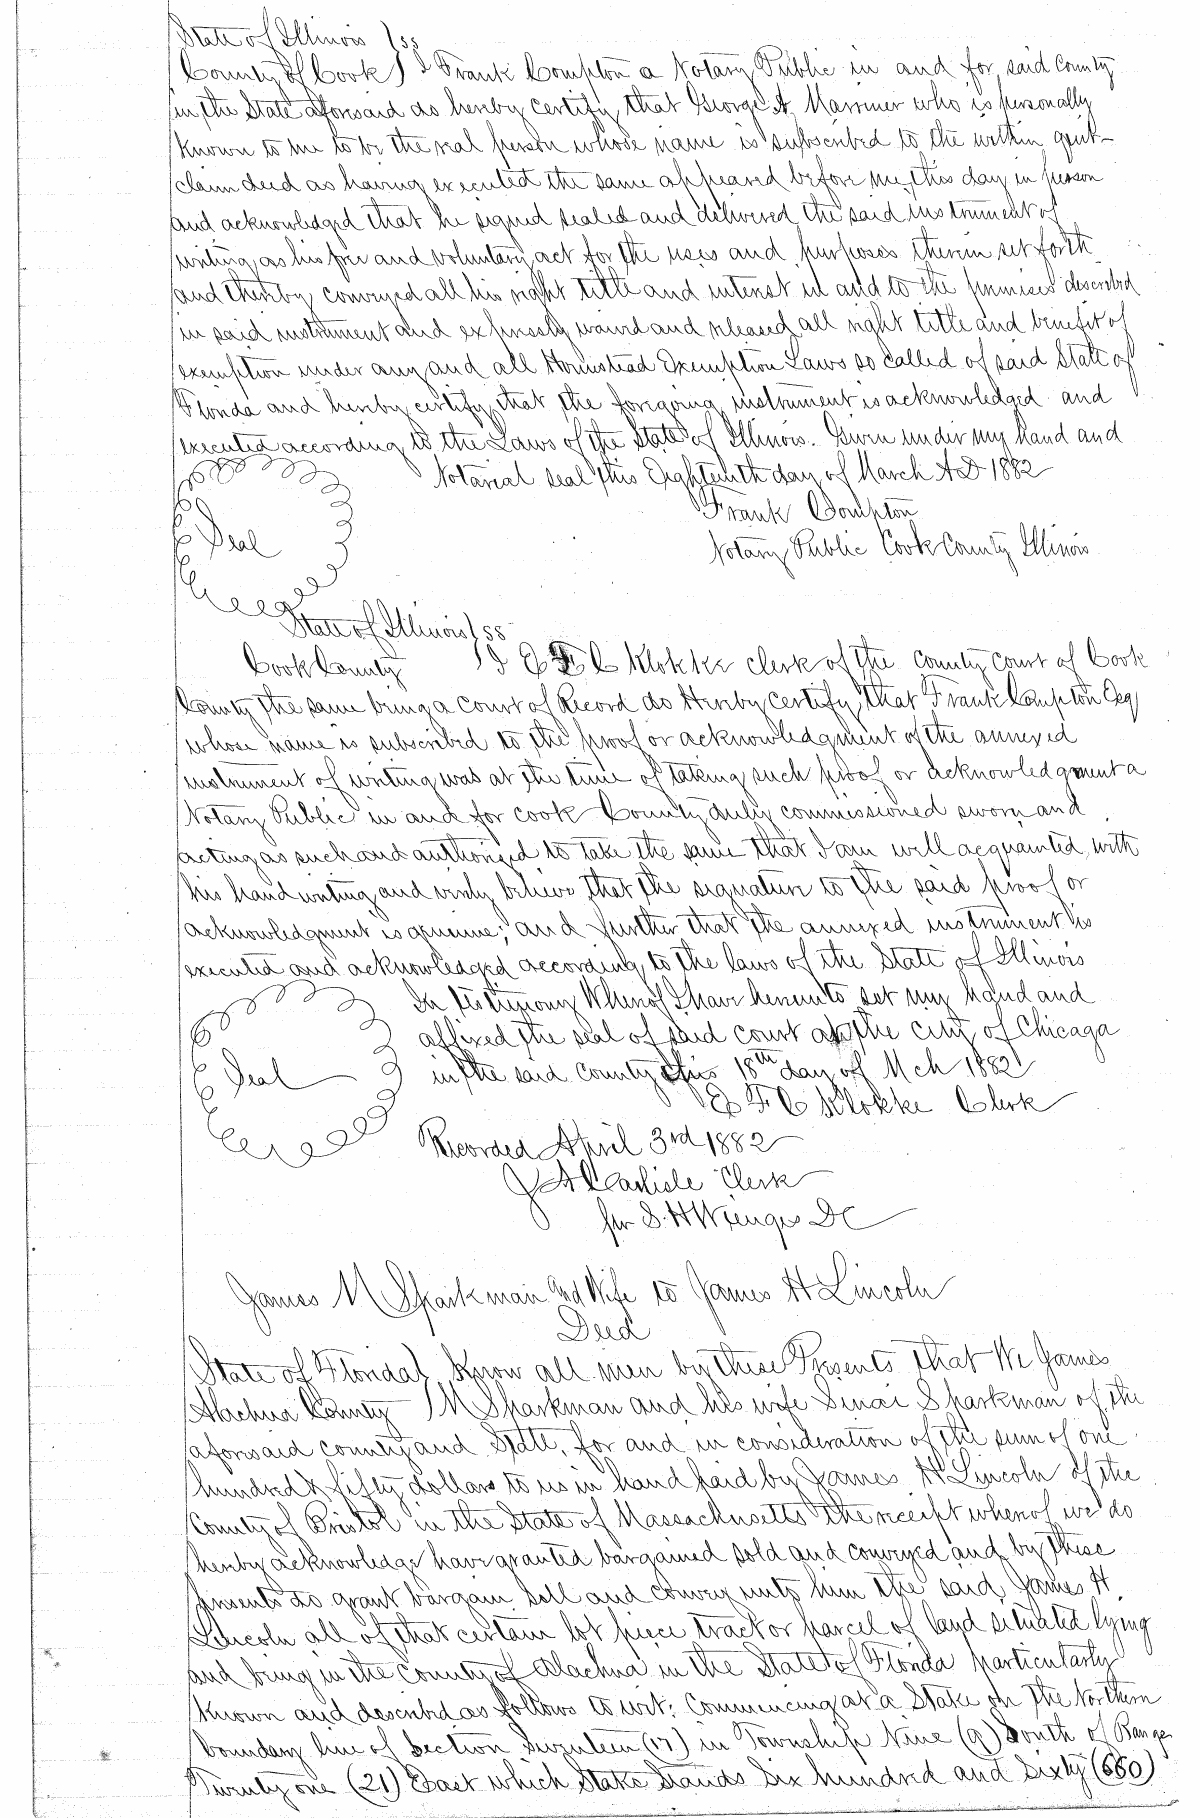 State of Illinois ) ss
County of Cook ) I Frank Compton a Notary Public in and for said County
in the State aforesaid do hereby certify that George A. Marriner who is personally
known to me to be the real person whose name is subscribed to the within quit-
claim deed as having executed the same appeared before me this day in person
and acknowledged that he signed sealed and delivered the said instrument of
writing as his free and voluntary act for the uses and purposes therein set forth
and thereby conveyed all his right title and interest in and to the premises described
in said instrument and expressly waived and released all right title and benefit of
exemption under any and all Homestead Exemption Laws so called of said State of
Florida and hereby certify that the foregoing instrument is acknowledged and
executed according to the Laws of the State of Illinois. Given under my hand and
Notarial seal this Eighteenth day of March AD 1882
Seal
Frank Compton
Notary Public Cook County Illinois
State of Illinois ) ss
Cook County ) I E F C Klokke clerk of the county court of Cook
County the same being a Court of Record do Hereby certify that Frank Compton Esq
whose name is subscribed to the proof or acknowledgment of the annexed
instrument of writing was at the time of taking such proof or acknowledgment a
Notary Public in and for Cook County duly commissioned sworn and
acting as such and authorized to take the same that I am well acquainted with
his hand writing and verily believe that the signature to the said proof or
acknowledgment is genuine; and further that the annexed instrument is
executed and acknowledged according to the laws of the State of Illinois
In testimony Whereof I have hereunto set my hand and
affixed the seal of said court at the city of Chicago
Seal
in the said County this 18th day of Mch 1882
E F C Klokke Clerk
Recorded April 3rd 1882
J A Carlisle Clerk
per S. H Wienges DC
James M Sparkman and Wife to James H Lincoln
Deed
State of Florida ) Know all men by these Presents that We James
Alachua County ) M Sparkman and his wife Sinai Sparkman of the
aforesaid county and State, for and in consideration of the sum of one
hundred & fifty dollars to us in hand paid by James H Lincoln of the
County of Bristol in the State of Massachusetts the receipt whereof we do
hereby acknowledge have granted bargained sold and conveyed and by these
presents do grant bargain sell and convey unto him the said James H
Lincoln all of that certain lot piece tract or parcel of land situated lying
and being in the County of Alachua in the State of Florida particularly
known and described as follows to wit: Commencing at a Stake on the Northern
boundary line of Section Seventeen (17) in Township Nine (9) South of Range
Twenty one (21) East which Stake stands Six hundred and Sixty (660)